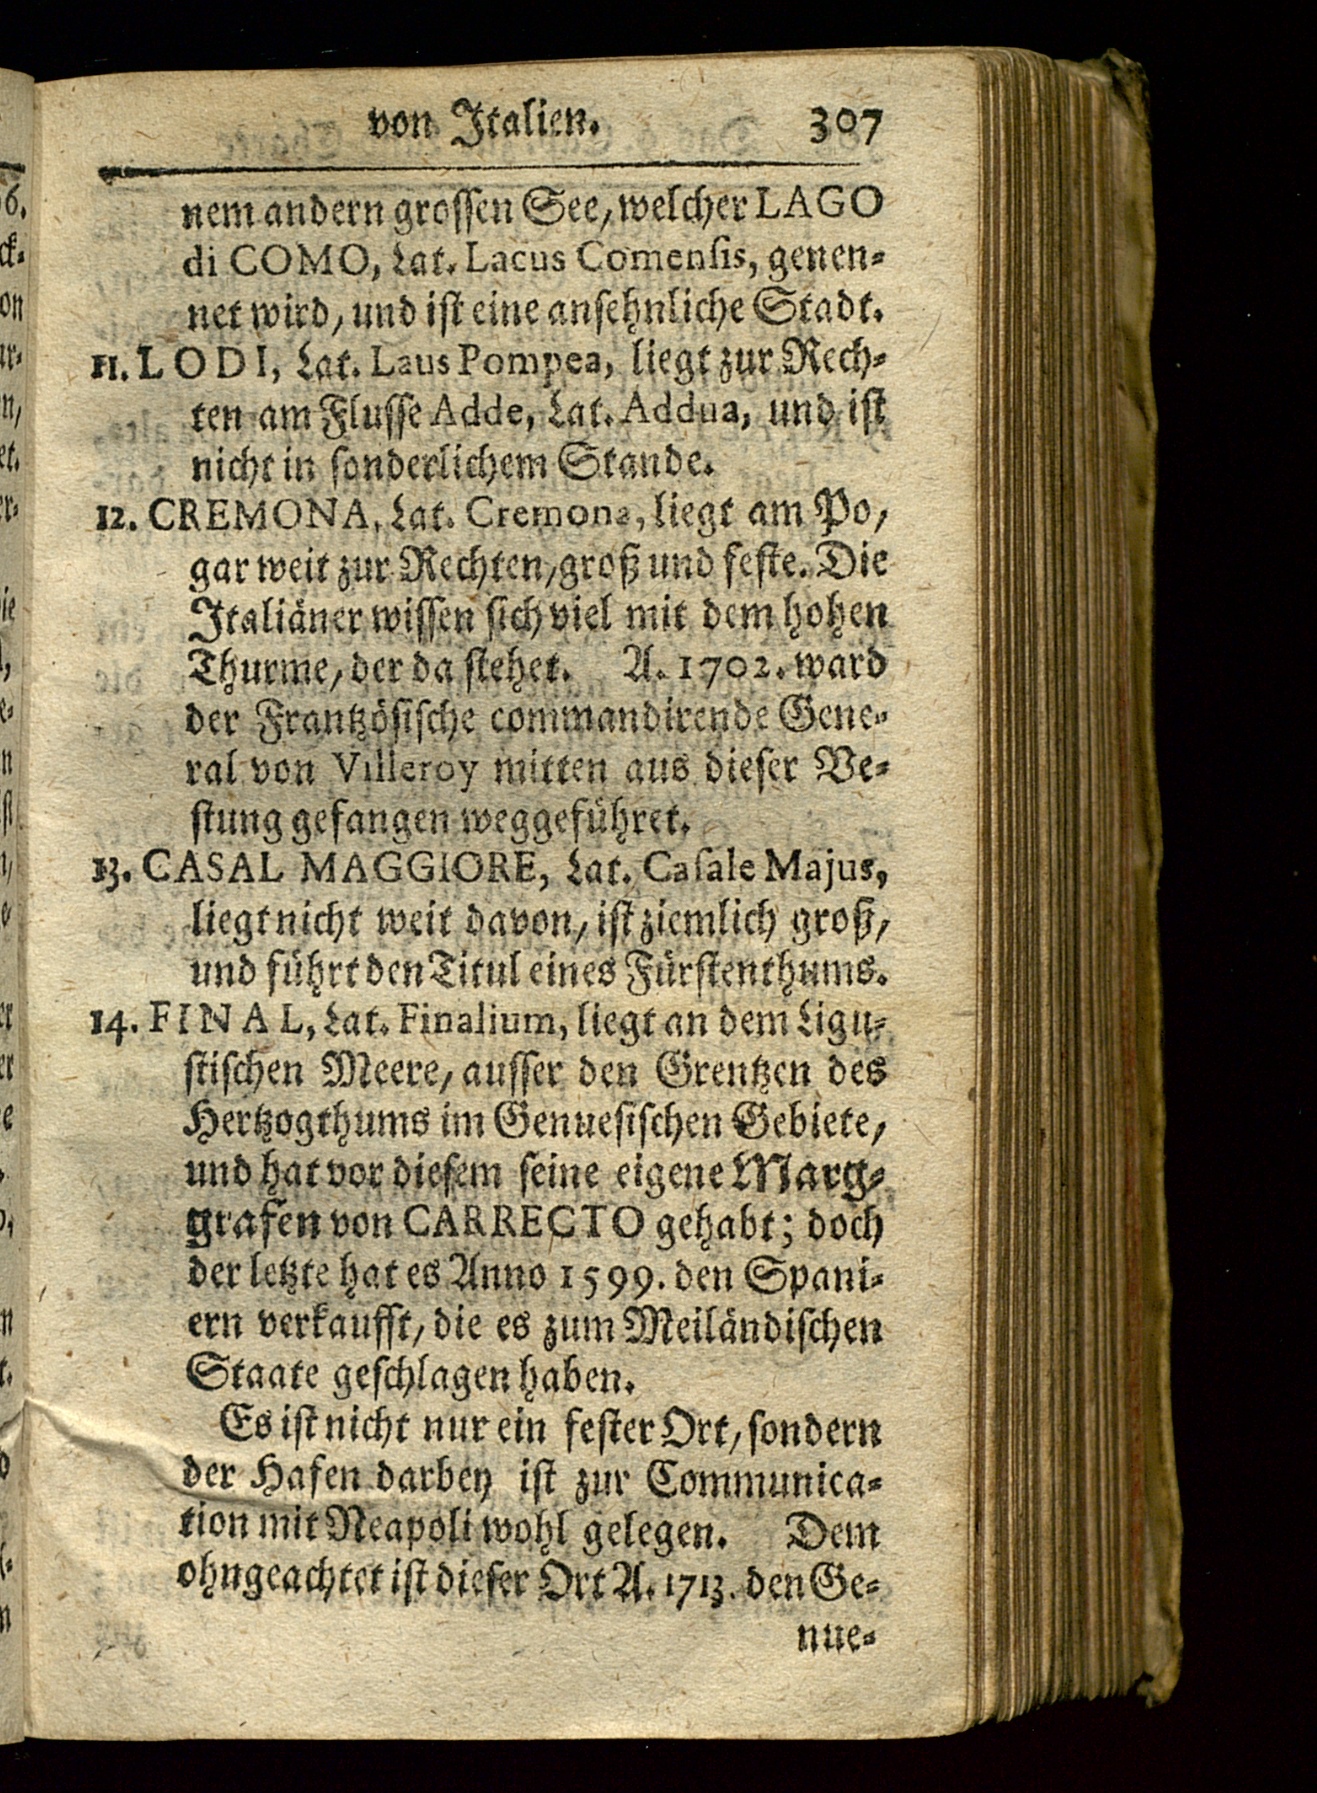 von Italien. 307
nem andern grossen See, welcher LAGO
di COMO, Lat. Lacus Comensis, genen-
net wird, und ist eine ansehnliche Stadt.
11. LODI, Lat. Laus Pompea, liegt zur Rech-
ten am Flusse Adde, Lat. Addua, und ist
nicht in sonderlichem Stande.
12. CREMONA, Lat. Cremona, liegt am Po,
gar weit zur Rechten, groß und feste. Die
Italiäner wissen sich viel mit dem hohen
Thurme, der da stehet. A. 1702. ward
der Frantzösische commandirende Gene-
ral von Villeroy mitten aus dieser Ve-
stung gefangen weggeführet.
13. CASAL MAGGIORE, Lat. Casale Majus,
liegt nicht weit davon, ist ziemlich groß,
und führt den Titul eines Fürstenthums.
14. FINAL, Lat. Finalium, liegt an dem Ligu-
stischen Meere, ausser den Grentzen des
Hertzogthums im Genuesischen Gebiete,
und hat vor diesem seine eigene Marg-
grafen von CARRECTO gehabt; doch
der letzte hat es Anno 1599. den Spani-
ern verkaufft, die es zum Meiländischen
Staate geschlagen haben.
Es ist nicht nur ein fester Ort, sondern
der Hafen darbey ist zur Communica-
tion mit Neapoli wohl gelegen. Dem
ohngeachtet ist dieser Ort A. 1713. den Ge-
nue-